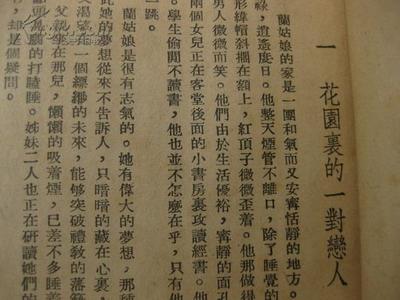 一 花園裏的一對戀人
蘭姑娘的家是一團和氣而又安甯恬靜的地方。
祿，逍遙度日。他整天煙管不離口，除了睡覺的
形緯帽斜擱在額上，紅頂子微微歪着。他那做得
男人微微而笑。他們由於生活優裕，甯靜的面孔
兩個女兒正在客堂後面的小書房裏攻讀經書。他
學生偷閒不讀書，他也並不怎麼在乎，只有他
一跳。
蘭姑娘是很有志氣的。她有偉大的夢想，那種
此她的夢想從來不告訴人，只暗暗的藏在心裏，
渴望在一個縹緲的未來，能够突破禮教的藩籬
父親坐在那兒，懶懶的吸着煙，已差不多睡着
的打瞌睡。姊妹二人也正在研讀她們的
却是個疑問。